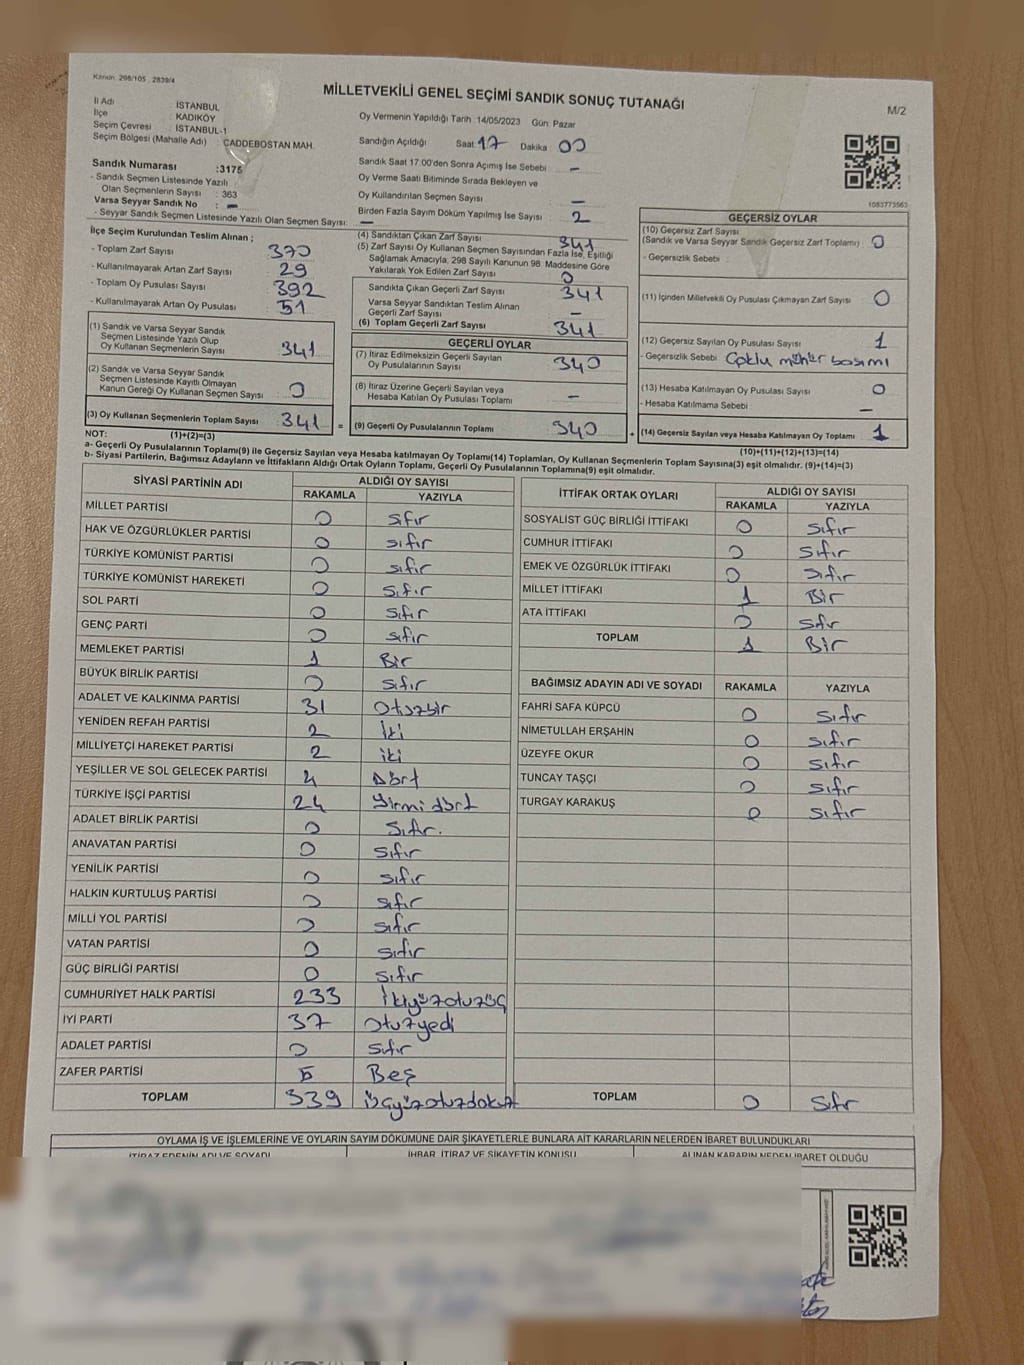 Kanun: 298/105 , 2839/4
MİLLETVEKİLİ GENEL SEÇİMİ SANDIK SONUÇ TUTANAĞI
M/2
İl Adı : İSTANBUL
İlçe : KADIKÖY
Seçim Çevresi : İSTANBUL-1
Seçim Bölgesi (Mahalle Adı) : CADDEBOSTAN MAH.
Sandık Numarası :3175
- Sandık Seçmen Listesinde Yazılı
Olan Seçmenlerin Sayısı : 363
Varsa Seyyar Sandık No : -
- Seyyar Sandık Seçmen Listesinde Yazılı Olan Seçmen Sayısı: -
Oy Vermenin Yapıldığı Tarih :14/05/2023 Gün: Pazar
Sandığın Açıldığı Saat 17 Dakika 00
Sandık Saat 17:00'den Sonra Açımış İse Sebebi : -
Oy Verme Saati Bitiminde Sırada Bekleyen ve
Oy Kullandırılan Seçmen Sayısı : -
Birden Fazla Sayım Döküm Yapılmış İse Sayısı : 2
1083773563
İlçe Seçim Kurulundan Teslim Alınan ;
- Toplam Zarf Sayısı : 370
- Kullanılmayarak Artan Zarf Sayısı : 29
- Toplam Oy Pusulası Sayısı : 392
- Kullanılmayarak Artan Oy Pusulası : 51
(1) Sandık ve Varsa Seyyar Sandık
Seçmen Listesinde Yazılı Olup
Oy Kullanan Seçmenlerin Sayısı : 341
(2) Sandık ve Varsa Seyyar Sandık
Seçmen Listesinde Kayıtlı Olmayan
Kanun Gereği Oy Kullanan Seçmen Sayısı : 0
(3) Oy Kullanan Seçmenlerin Toplam Sayısı : 341
(4) Sandıktan Çıkan Zarf Sayısı : 341
(5) Zarf Sayısı Oy Kullanan Seçmen Sayısından Fazla İse, Eşitliği
Sağlamak Amacıyla, 298 Sayılı Kanunun 98. Maddesine Göre
Yakılarak Yok Edilen Zarf Sayısı : 0
Sandıkta Çıkan Geçerli Zarf Sayısı : 341
Varsa Seyyar Sandıktan Teslim Alınan
Geçerli Zarf Sayısı : -
(6) Toplam Geçerli Zarf Sayısı : 341
GEÇERLİ OYLAR
(7) İtiraz Edilmeksizin Geçerli Sayılan
Oy Pusulalarının Sayısı : 340
(8) İtiraz Üzerine Geçerli Sayılan veya
Hesaba Katılan Oy Pusulası Toplamı : -
= (9) Geçerli Oy Pusulalarının Toplamı : 340
GEÇERSİZ OYLAR
(10) Geçersiz Zarf Sayısı
(Sandık ve Varsa Seyyar Sandık Geçersiz Zarf Toplamı) : 0
- Geçersizlik Sebebi :
(11) İçinden Milletvekili Oy Pusulası Çıkmayan Zarf Sayısı : 0
(12) Geçersiz Sayılan Oy Pusulası Sayısı : 1
- Geçersizlik Sebebi : Çoklu mühür basımı
(13) Hesaba Katılmayan Oy Pusulası Sayısı : 0
- Hesaba Katılmama Sebebi : -
+ (14) Geçersiz Sayılan veya Hesaba Katılmayan Oy Toplamı : 1
NOT: (1)+(2)=(3)
(10)+(11)+(12)+(13)=(14)
a- Geçerli Oy Pusulaların Toplamı(9) ile Geçersiz Sayılan veya Hesaba katılmayan Oy Toplamı(14) Toplamları, Oy Kullanan Seçmenlerin Toplam Sayısına(3) eşit olmalıdır. (9)+(14)=(3)
b- Siyasi Partilerin, Bağımsız Adayların ve İttifakların Aldığı Ortak Oyların Toplamı, Geçerli Oy Pusulalarının Toplamına(9) eşit olmalıdır.
SİYASİ PARTİNİN ADI ALDIĞI OY SAYISI
RAKAMLA YAZIYLA
MİLLET PARTİSİ 0 sıfır
HAK VE ÖZGÜRLÜKLER PARTİSİ 0 sıfır
TÜRKİYE KOMÜNİST PARTİSİ 0 sıfır
TÜRKİYE KOMÜNİST HAREKETİ 0 sıfır
SOL PARTİ 0 sıfır
GENÇ PARTİ 0 sıfır
MEMLEKET PARTİSİ 1 Bir
BÜYÜK BİRLİK PARTİSİ 0 sıfır
ADALET VE KALKINMA PARTİSİ 31 Otuzbir
YENİDEN REFAH PARTİSİ 2 İki
MİLLİYETÇİ HAREKET PARTİSİ 2 iki
YEŞİLLER VE SOL GELECEK PARTİSİ 4 Dört
TÜRKİYE İŞÇİ PARTİSİ 24 Yirmi dört
ADALET BİRLİK PARTİSİ 0 Sıfır.
ANAVATAN PARTİSİ 0 sıfır
YENİLİK PARTİSİ 0 sıfır
HALKIN KURTULUŞ PARTİSİ 0 sıfır
MİLLİ YOL PARTİSİ 0 sıfır
VATAN PARTİSİ 0 sıfır
GÜÇ BİRLİĞİ PARTİSİ 0 sıfır
CUMHURİYET HALK PARTİSİ 233 İkiyüzotuzüç
İYİ PARTİ 37 otuzyedi
ADALET PARTİSİ 0 sıfır
ZAFER PARTİSİ 5 Beş
TOPLAM 339 üçyüzotuzdokuz
İTTİFAK ORTAK OYLARI ALDIĞI OY SAYISI
RAKAMLA YAZIYLA
SOSYALİST GÜÇ BİRLİĞİ İTTİFAKI 0 sıfır
CUMHUR İTTİFAKI 0 sıfır
EMEK VE ÖZGÜRLÜK İTTİFAKI 0 sıfır
MİLLET İTTİFAKI 1 Bir
ATA İTTİFAKI 0 sıfır
TOPLAM 1 Bir
BAĞIMSIZ ADAYIN ADI VE SOYADI RAKAMLA YAZIYLA
FAHRİ SAFA KÜPCÜ 0 sıfır
NİMETULLAH ERŞAHİN 0 sıfır
ÜZEYFE OKUR 0 sıfır
TUNCAY TAŞÇI 0 sıfır
TURGAY KARAKUŞ 0 sıfır
TOPLAM 0 Sıfır
OYLAMA İŞ VE İŞLEMLERİNE VE OYLARIN SAYIM DÖKÜMÜNE DAİR ŞİKAYETLERLE BUNLARA AİT KARARLARIN NELERDEN İBARET BULUNDUKLARI
İTİRAZ EDENİN ADI VE SOYADI İHBAR, İTİRAZ VE ŞİKAYETİN KONUSU ALINAN KARARIN NEDEN İBARET OLDUĞU